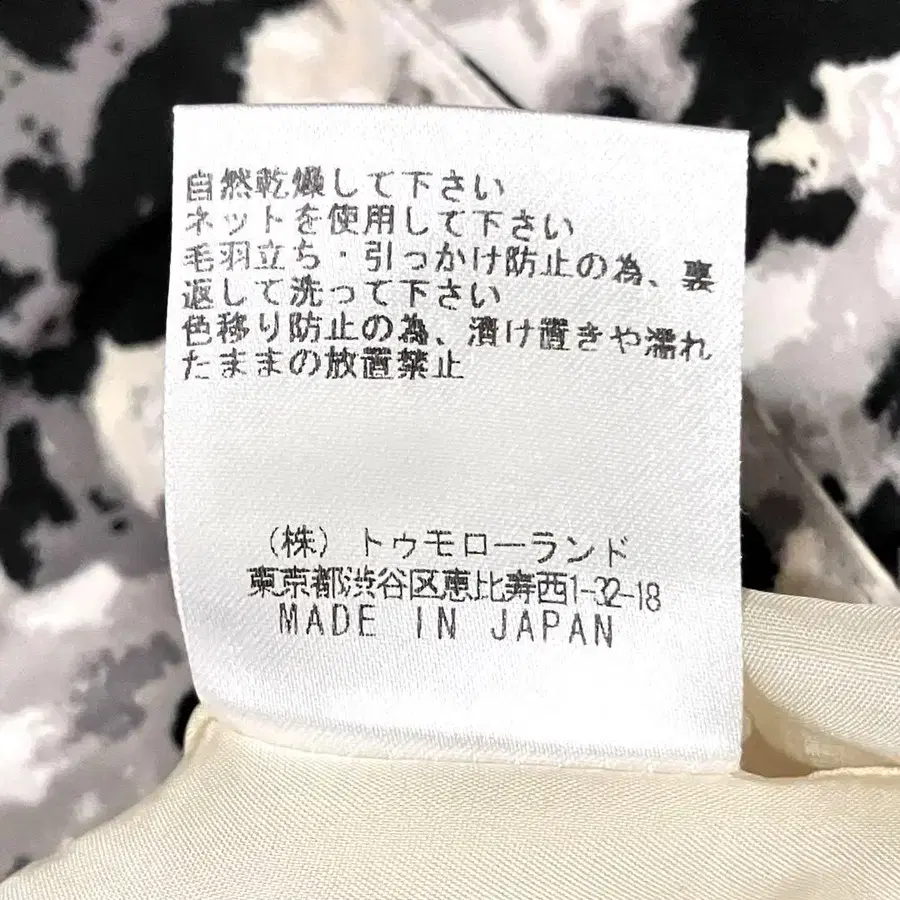 自然乾燥して下さい
ネットを使用して下さい
毛羽立ち・引っかけ防止の為、裏
返して洗って下さい
色移り防止の為、漬け置きや濡れ
たままの放置禁止
(株)トゥモローランド
東京都渋谷区恵比寿西1-32-18
MADE IN JAPAN